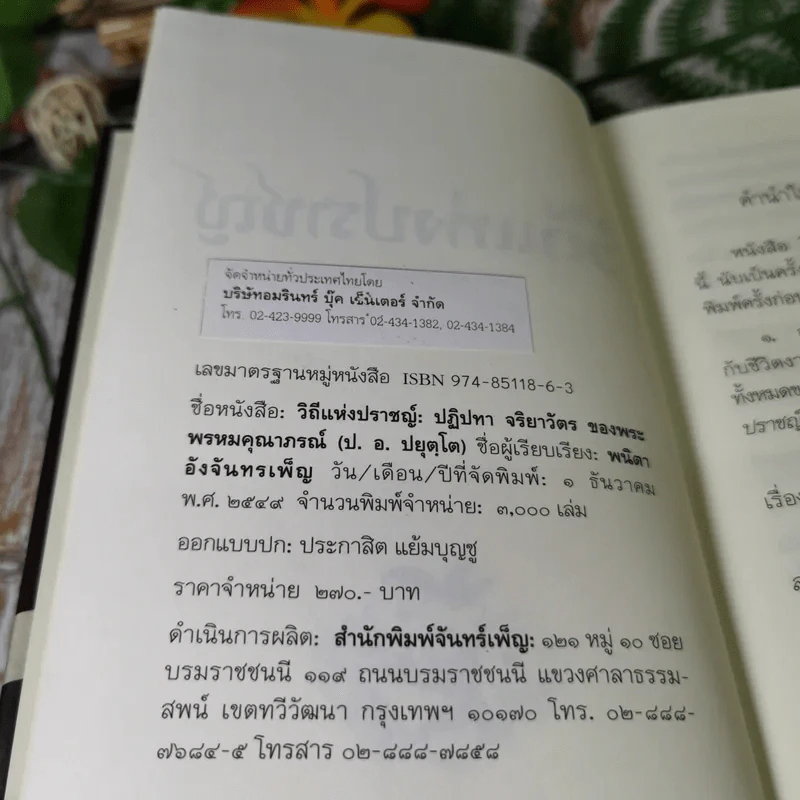 จัดจำหน่ายทั่วประเทศไทยโดย
บริษัทอมรินทร์ บุ๊ค เซ็นเตอร์ จำกัด
โทร. 02-423-9999 โทรสาร 02-434-1382, 02-434-1384
เลขมาตรฐานหมู่หนังสือ ISBN 974-85118-6-3
ชื่อหนังสือ: วิถีแห่งปราชญ์: ปฏิปทา จริยาวัตร ของพระ
พรหมคุณาภรณ์ (ป. อ. ปยุตฺโต) ชื่อผู้เรียบเรียง: พนิตา
อังจันทรเพ็ญ วัน/เดือน/ปีที่จัดพิมพ์: ๑ ธันวาคม
พ.ศ. ๒๕๔๙ จำนวนพิมพ์จำหน่าย: ๓,๐๐๐ เล่ม
ออกแบบปก: ประกาสิต แย้มบุญชู
ราคาจำหน่าย ๒๗๐.- บาท
ดำเนินการผลิต: สำนักพิมพ์จันทร์เพ็ญ: ๑๒๑ หมู่ ๑๐ ซอย
บรมราชชนนี ๑๑๙ ถนนบรมราชชนนี แขวงศาลาธรรม-
สพน์ เขตทวีวัฒนา กรุงเทพฯ ๑๐๑๗๐ โทร. ๐๒-๘๘๘-
๗๖๘๔-๕ โทรสาร ๐๒-๘๘๘-๗๘๕๘
คำนำใ
หนังสือ
นี้ นับเป็นครั้ง
พิมพ์ครั้งก่อน
๑.
กับชีวิตงา
ทั้งหมดข
ปราชญ์
เรื่อง